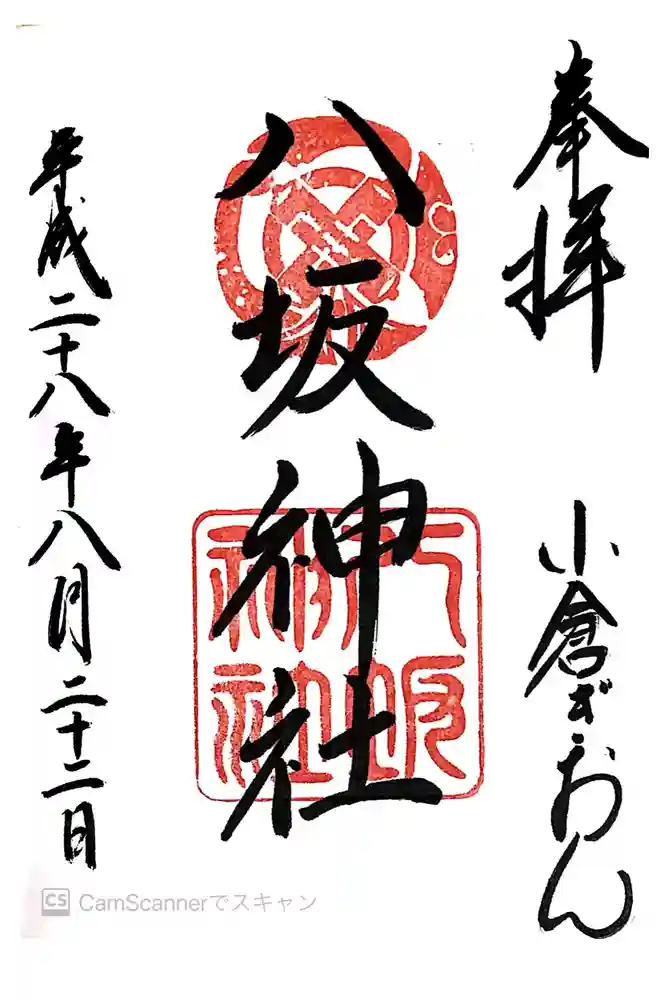 奉拝
小倉ぎおん
八坂神社
八坂神社
平成二十八年八月二十二日
CS CamScannerでスキャン